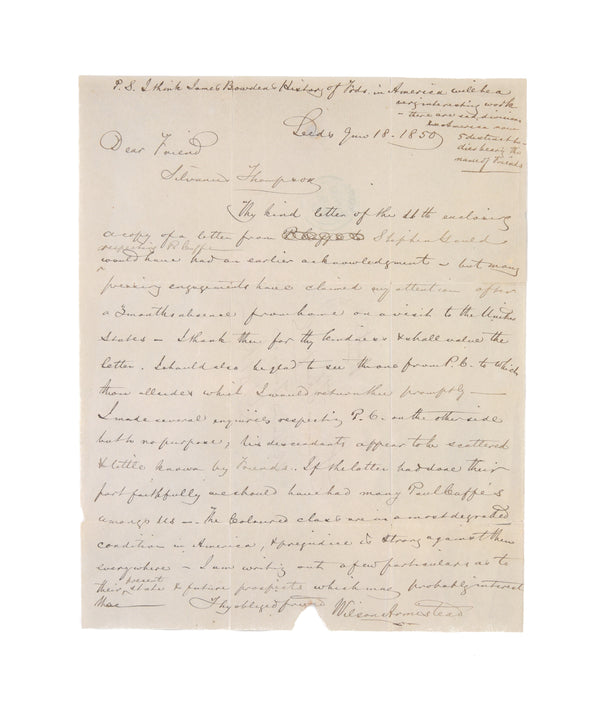 P.S. I think James Bowden's History of Frds. in America will be a
very interesting work
- there are sad divisions
5 distinct bo-
dies bearing the
name of Friends
Leeds 1850
Dear Friend
Silvanus Thompson
Thy kind letter of the 11th enclosing
a copy of a letter from Stephen Gould
respecting P. Cuffe
would have had an earlier acknowledgment - but many
pressing engagements have claimed my attention after
a 3 months absence from home on a visit to the United
States - I thank thee for thy kindness & shall value the
letter. I should also be glad to see the one from P.C. to which
thou alludes which I would return thee promptly -
I made several enquiries respecting P.C. on the other side
but to no purpose, his descendants appear to be scattered
& little known by Friends. If the latter had done their
part faithfully we should have had many Paul Cuffe's
amongst us - The Coloured class are in a most degraded
condition in America, & prejudice is strong against them
everywhere - I am writing out a few particulars as to
their present state & future prospects which may probably interest
thee Thy obliged friend Wilson Armistead